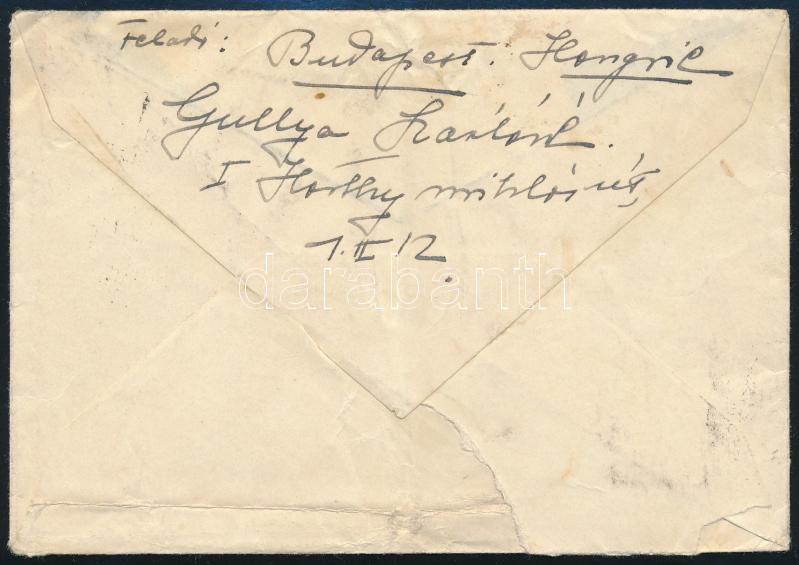 Feladó: Budapest. Hongrie
Gullya Károlyné.
I Horthy miklós út,
1. II 12.
darabanth